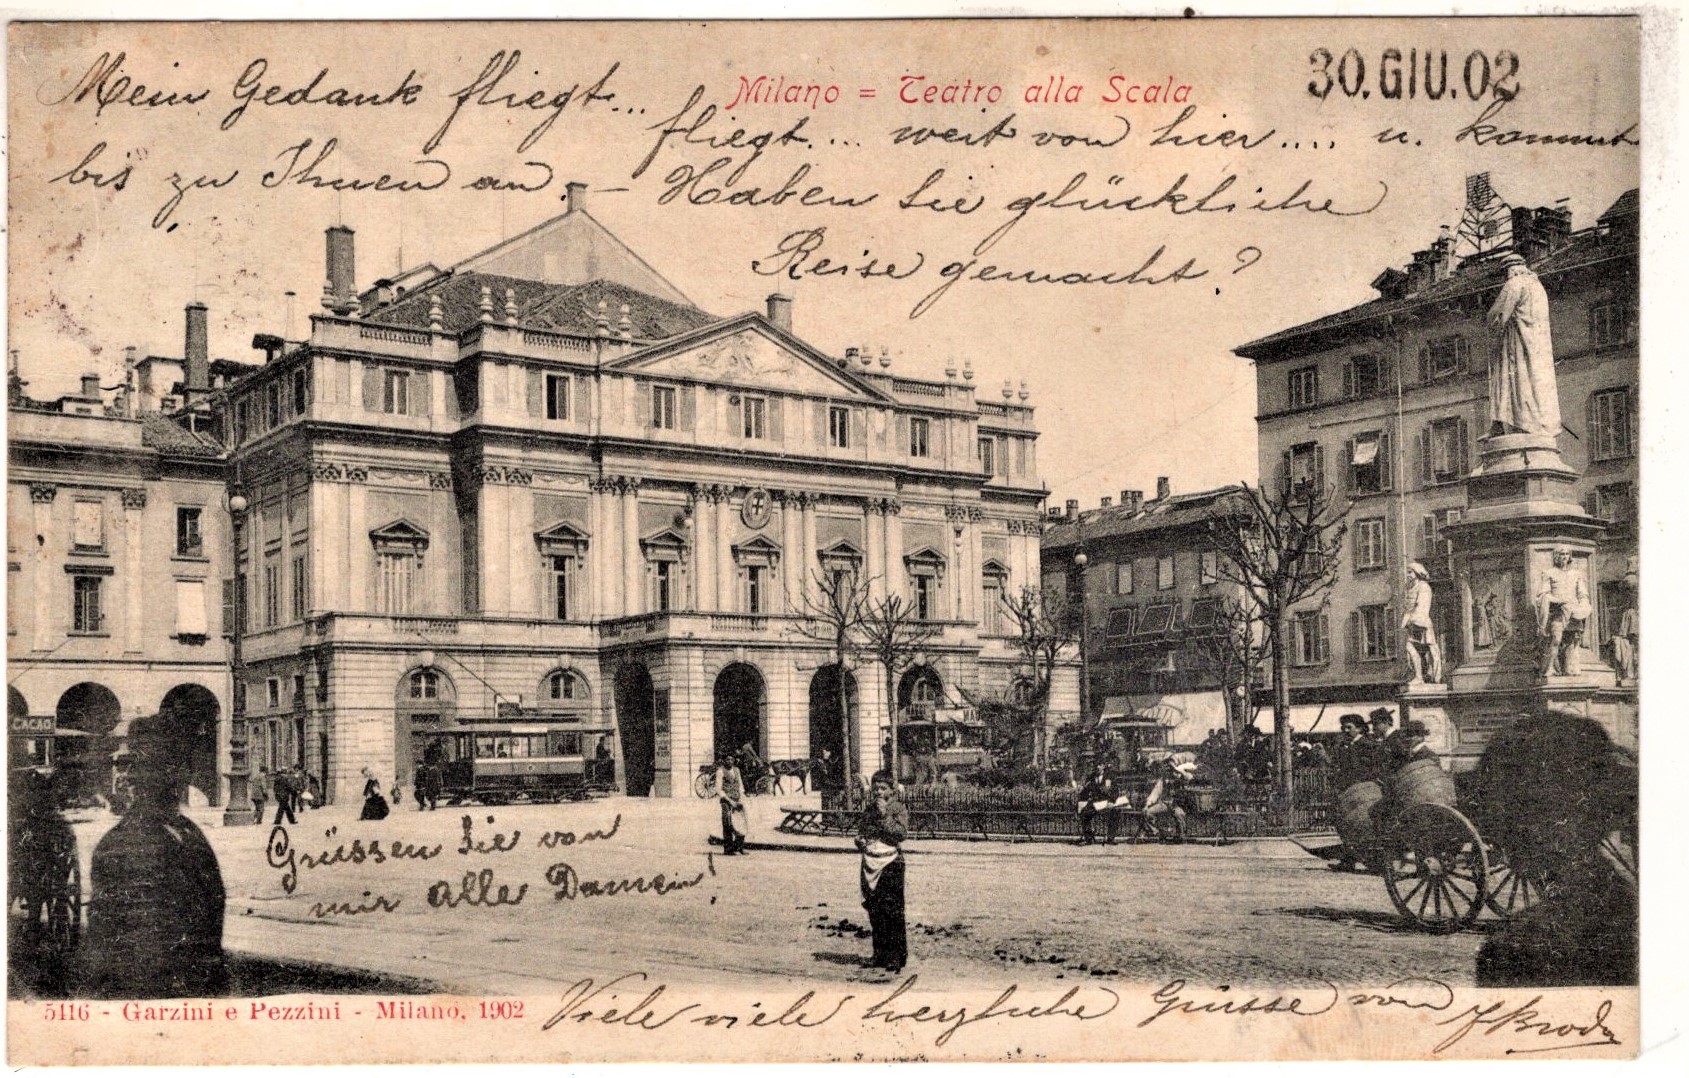 Milano = Teatro alla Scala
30.GIU.02
Mein Gedank fliegt...
fliegt.... weit von hier.... u. kommt
bis zu Ihnen an. – Haben Sie glückliche
Reise gemacht?
CACAO
Grüssen Sie von
mir alle Damen!
5416 - Garzini e Pezzini - Milano, 1902
Viele viele herzliche Grüsse von